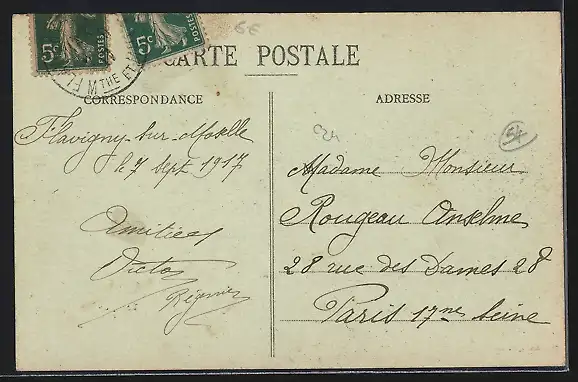 5c POSTES
5c POSTES
6E
CARTE POSTALE
CORRESPONDANCE
ADRESSE
Flavigny-sur-Moselle
le 7 Sept 1917
Amitiées
Victor
Régnier
Madame Monsieur
Rougeau Anselme
28 rue des Dames 28
Paris 17me Seine